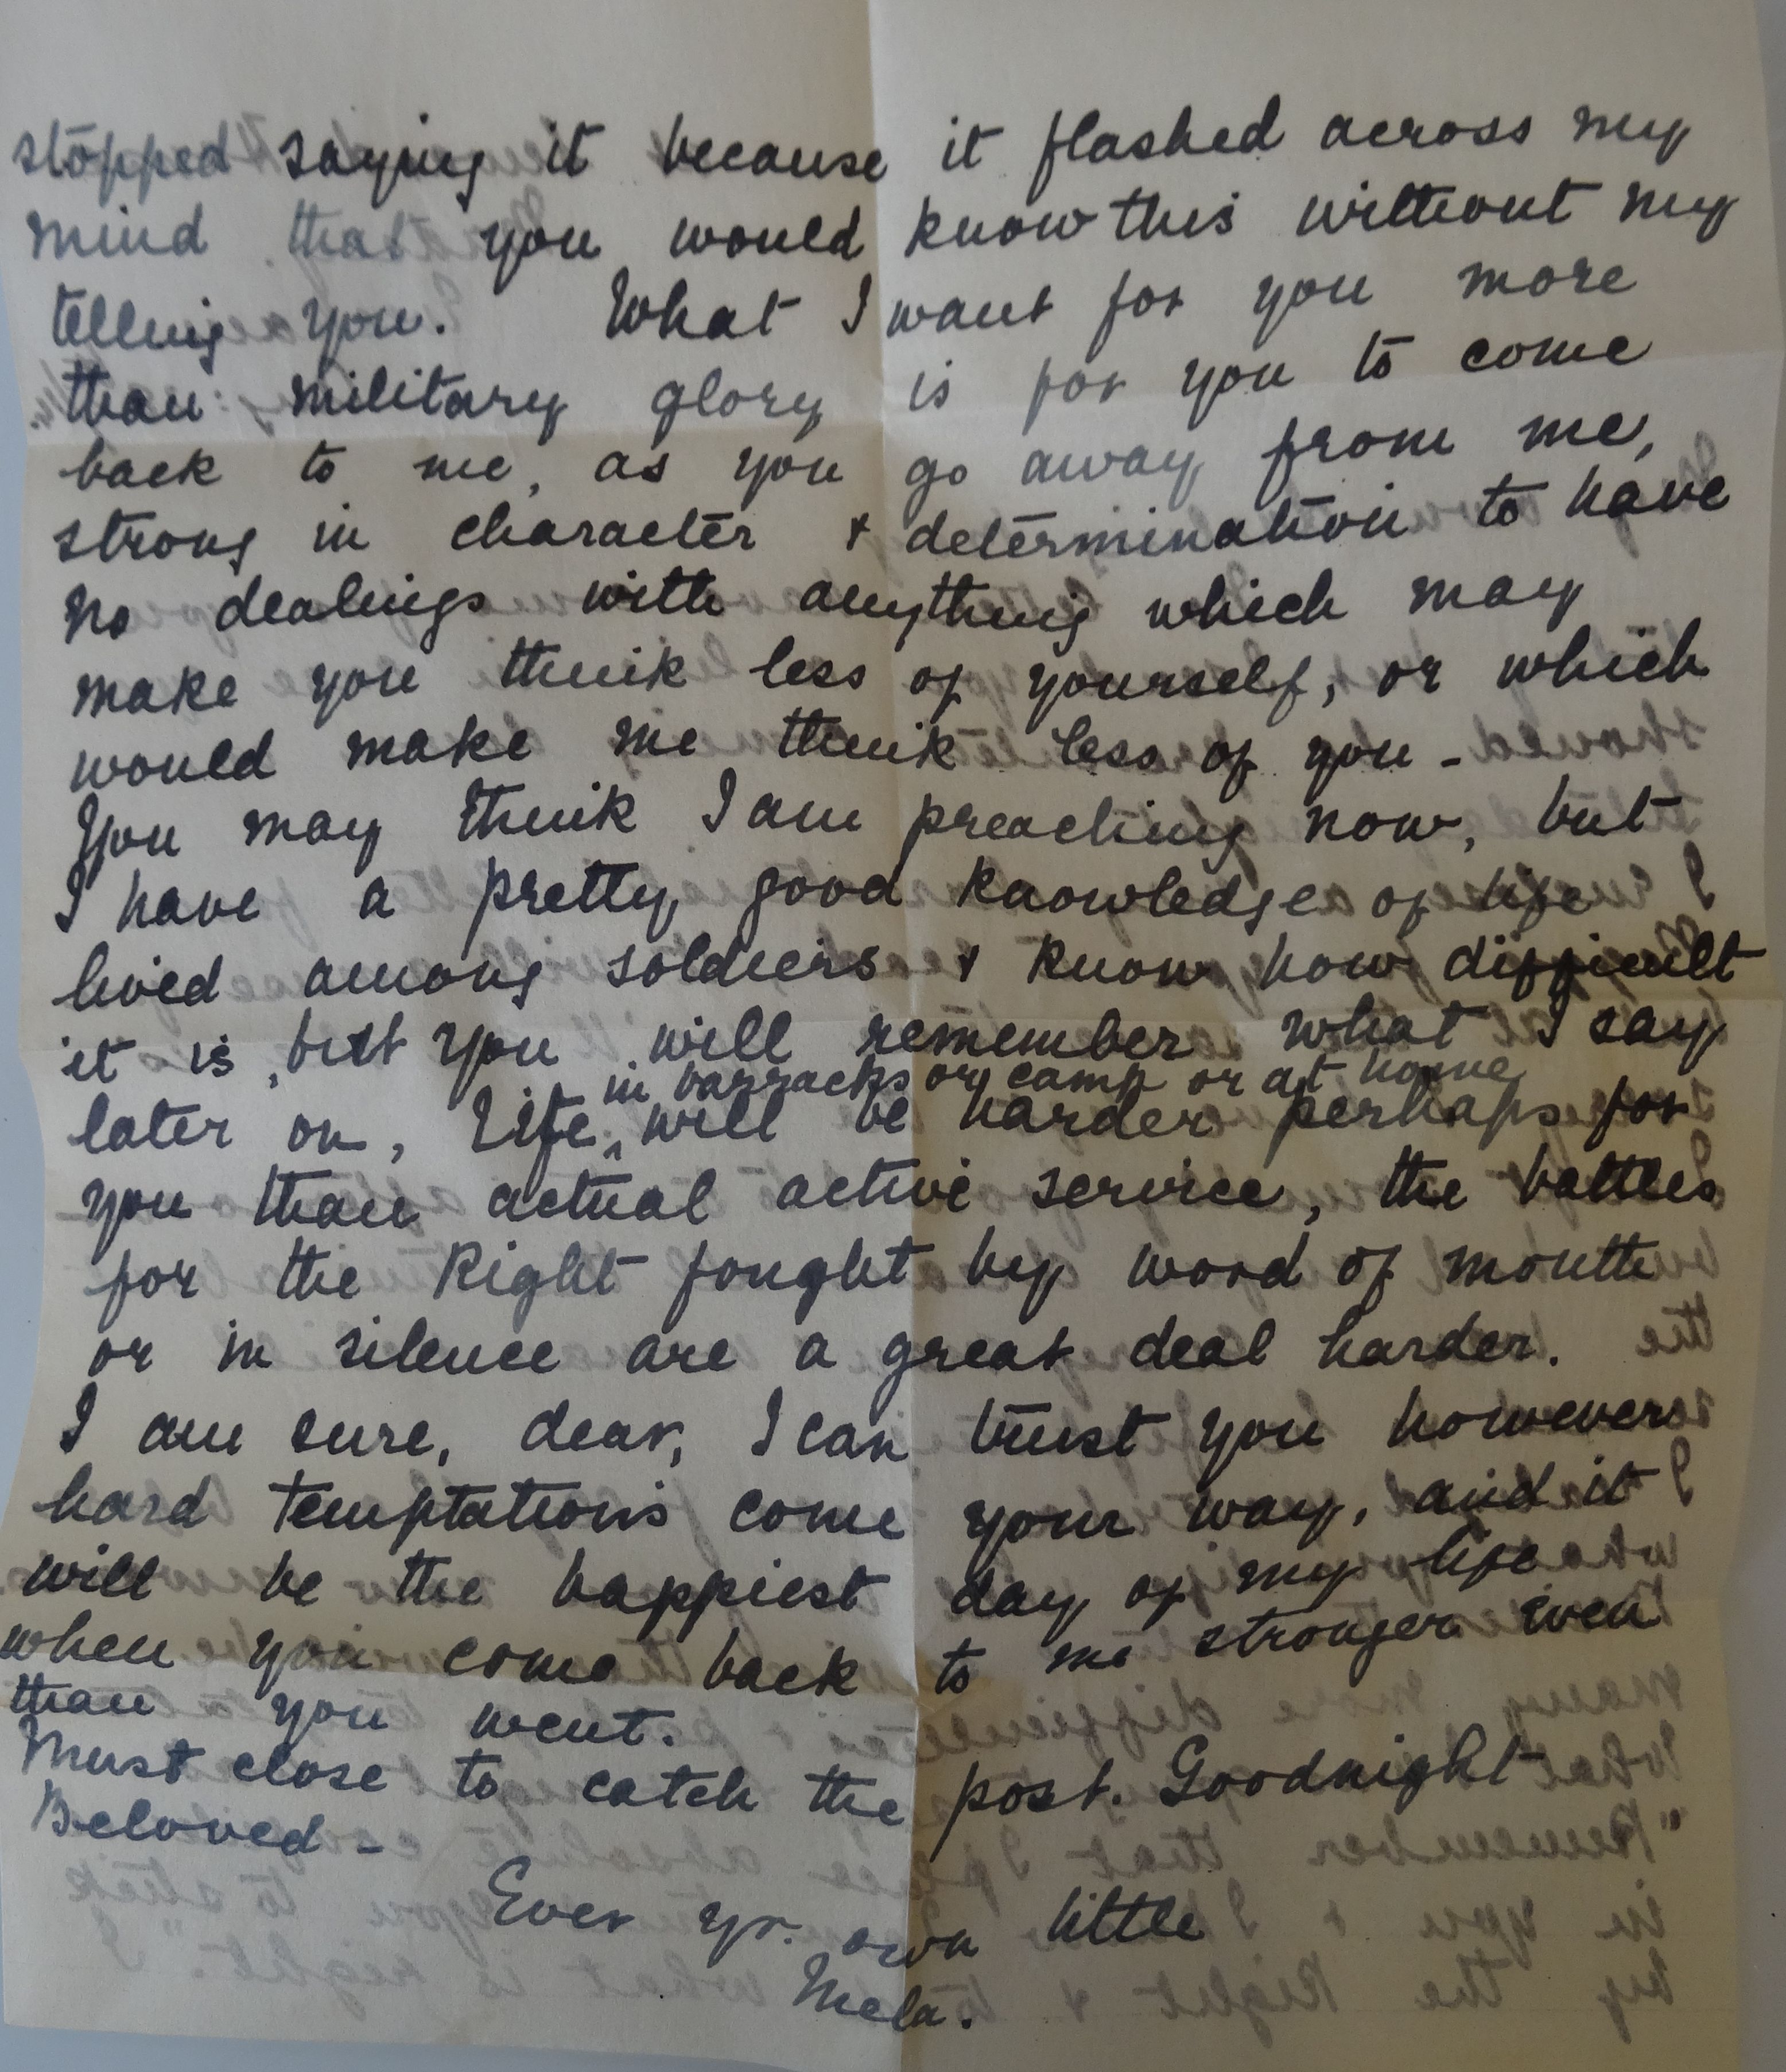 stopped saying it because it flashed across my
mind that you would know this without my
telling you. What I want for you more
than military glory is for you to come
back to me, as you go away from me,
strong in character & determination to have
no dealings with anything which may
make you think less of yourself, or which
would make me think less of you -
You may think I am preaching now, but
I have a pretty good knowledge of life
lived among soldiers & know how difficult
it is, but you will remember what I say
in barracks or camp or at home
later on, Life ^ will be harder perhaps for
you than actual active service, the battles
for the Right fought by word of mouth
or in silence are a great deal harder.
I am sure, dear, I can trust you however
hard temptations come your way, and it
will be the happiest day of my life
when you come back to me stronger even
than you went.
Must close to catch the post. Goodnight
Beloved -
Ever yr. own little
Mela.